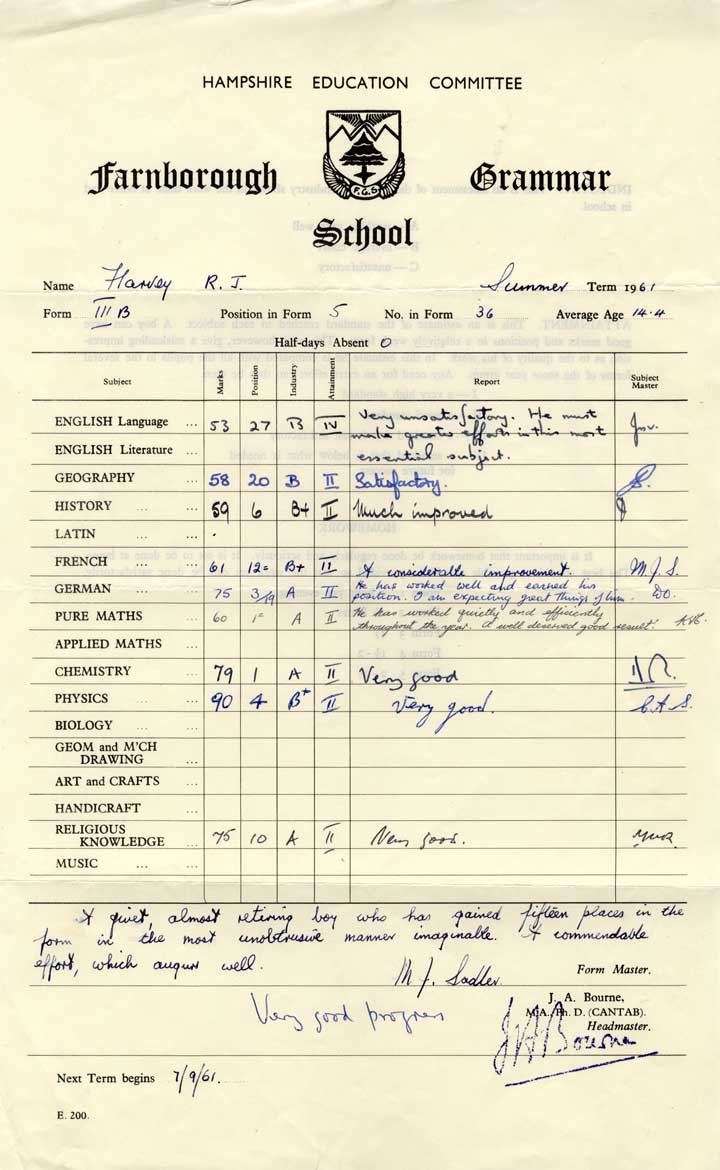 HAMPSHIRE EDUCATION COMMITTEE
F.G.S
Farnborough Grammar
School
Name Harvey R. J. Summer Term 1961
Form III B Position in Form 5 No. in Form 36 Average Age 14.4
Half-days Absent 0
Subject Marks Position Industry Attainment Report Subject Master
ENGLISH Language ... 53 27 B IV Very unsatisfactory. He must
make greater efforts in this most
ENGLISH Literature ... essential subject.
GEOGRAPHY ... 58 20 B II Satisfactory.
HISTORY ... ... 59 6 B+ II Much improved
LATIN ... ...
FRENCH ... ... 61 12= B+ II A considerable improvement. M.J.S.
GERMAN ... ... 75 3/19 A II He has worked well and earned his
position. I am expecting great things of him. DO.
PURE MATHS ... 60 1= A II He has worked quietly and efficiently
throughout the year. A well deserved good result!
APPLIED MATHS ...
CHEMISTRY ... 79 1 A II Very good
PHYSICS ... ... 90 4 B+ II Very good. C.A.S.
BIOLOGY ... ...
GEOM and M'CH
DRAWING ...
ART and CRAFTS ...
HANDICRAFT ...
RELIGIOUS
KNOWLEDGE ... 75 10 A II Very good.
MUSIC ... ...
A quiet, almost retiring boy who has gained fifteen places in the
form in the most unobtrusive manner imaginable. A commendable
effort, which augurs well.
M J. Sadler Form Master.
J. A. Bourne,
M.A. Ph. D. (CANTAB).
Very good progress
Headmaster.
J A Bourne
Next Term begins 7/9/61.
E. 200.